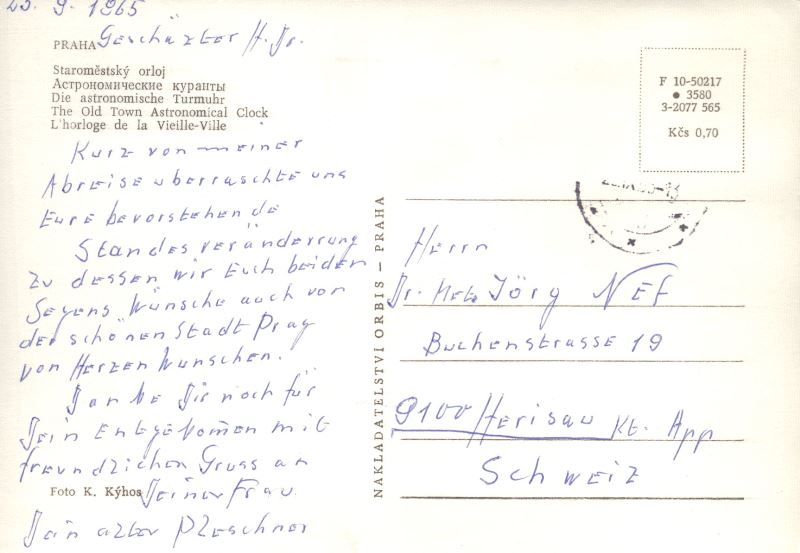 25. 9. 1965
PRAHA Geschäzter H. Dr.
Staroměstský orloj
Астрономические куранты
Die astronomische Turmuhr
The Old Town Astronomical Clock
L'horloge de la Vieille-Ville
Kurz von meiner
Abreise uberraschte uns
Eure bevorstehende
Standesveränderrung
zu dessen wir Euch beiden
Segens Wünsche auch von
der schönen Stadt Prag
von Herzen Wunschen.
Danke Dir noch für
Dein Entgekomen mit
freundlichen Gruss an
Foto K. Kýhos Deiner Frau
Dein alter Pleschner
NAKLADATELSTVÍ ORBIS — PRAHA
F 10-50217
● 3580
3-2077 565
Kčs 0,70
Herrn
Dr. Met. Jörg NEF
Buchenstrasse 19
9100 Herisau Kt. App
Schweiz